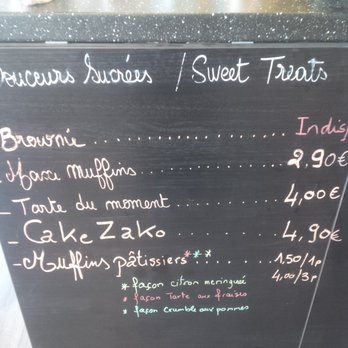 Douceurs Sucrées / Sweet Treats
Brownie .................. Indisp
- Maxi Muffins .................. 2,90€
- Tarte du moment .................. 4,00€
- Cake Zako .................. 4,90€
- Muffins pâtissiers*** .... 1,50/1p
4,00/3p
* façon citron meringuée
* façon Tarte aux fraises
* façon Crumble aux pommes